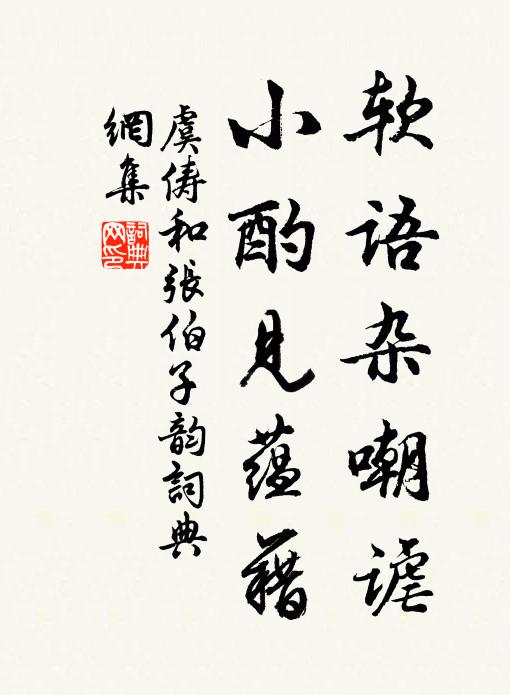 软语杂嘲谑
小酌见蕴藉
虞俦和張伯子韵詞典
網集
詞典
网印